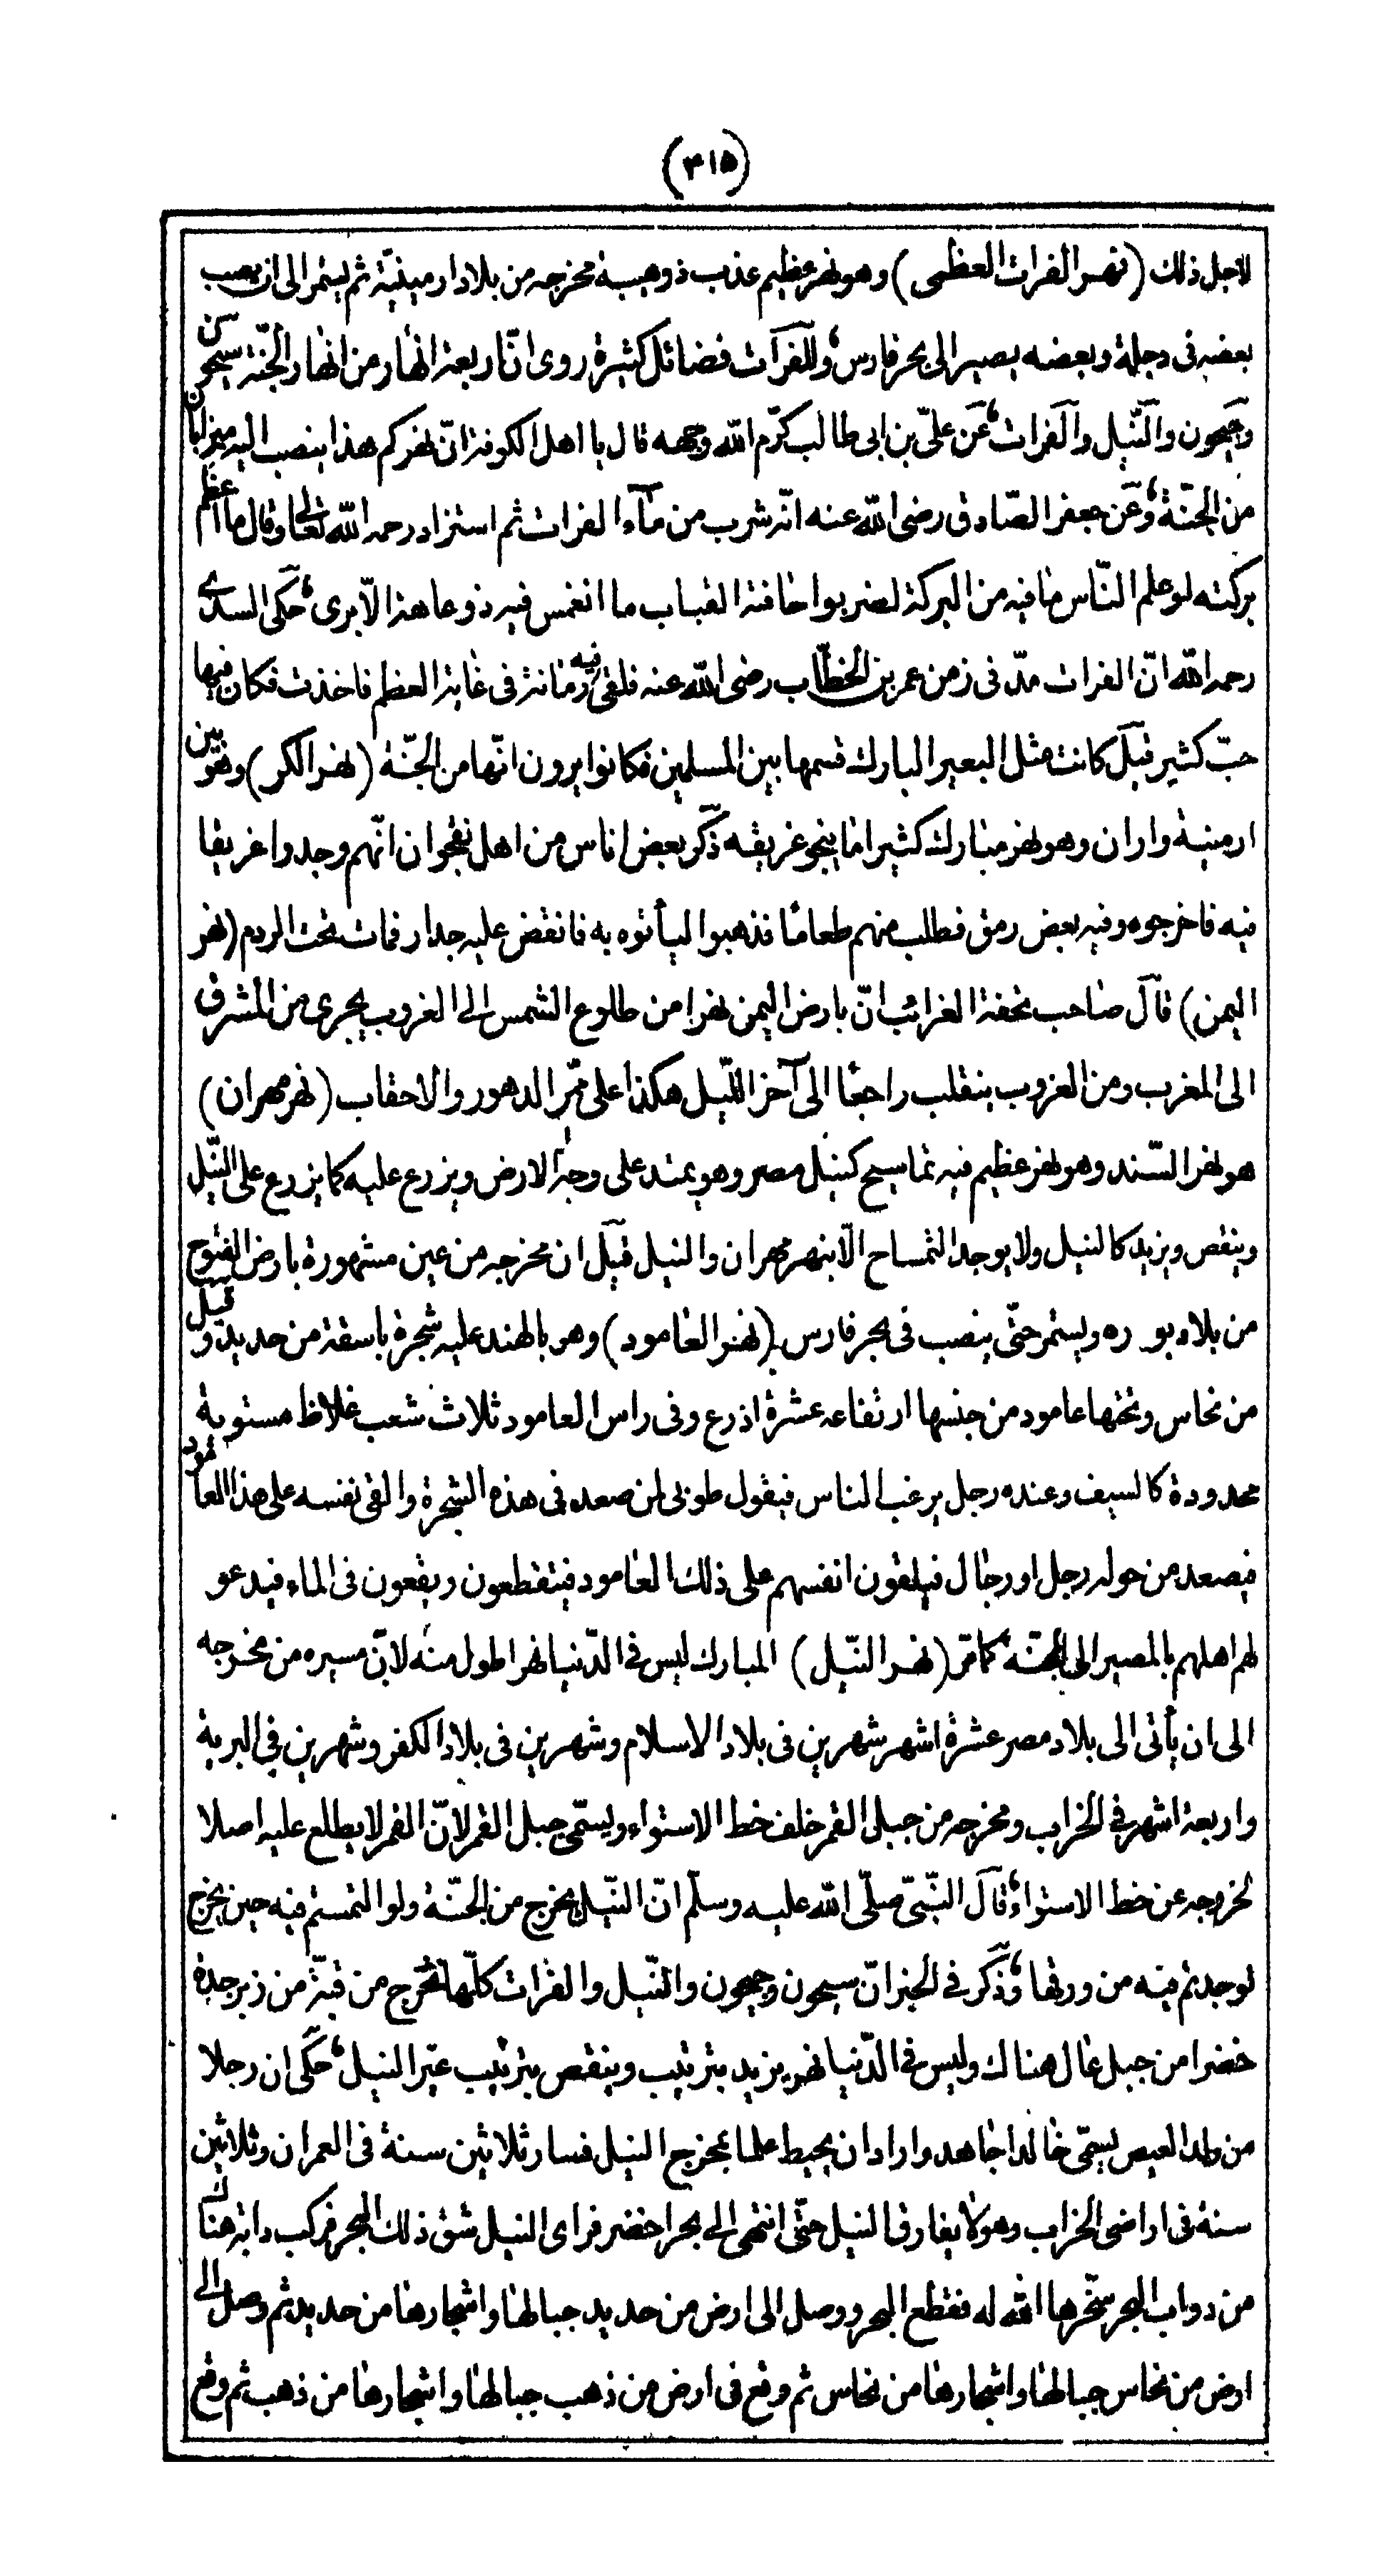 (٣١٥)
لاجل ذلك (نهر الفرات العظمى) وهو نهر عظيم عذب ذو هيبة مخرجه من بلاد ارمينيّة ثم يستمر الى ان يصب
بعضه فى دجلة وبعضه يصير الى بحر فارس وللفرات فضائل كثيرة روى انّ اربعة انهار من انهار الجنّة سيحون
وجيحون والنّيل والفرات عن علىّ بن ابى طالب كرّم الله وجهه قال يا اهل الكوفة انّ نهركم هذا ينصب اليه ميزابان
من الجنّة وعن جعفر الصّادق رضى الله عنه انّه شرب من ماء الفرات ثم استزاد رحمه الله تعالى وقال ما اعظم
بركته لو علم النّاس ما فيه من البركة لضربوا حافته القباب ما انغمس فيه ذو عاهة الّا برى حكى السدى
رحمه الله انّ الفرات مدّ فى زمن عمر بن الخطّاب رضى الله عنه فلقى فيه رمانة فى غاية العظم فاخذت فكان فيها
حبّ كثير قيل كانت مثل البعير البارك قسمها بين المسلمين فكانوا يرون انّها من الجنّة (نهر الكر) وهو بين
ارمنية واران وهو نهر مبارك كثيرا ما ينجو غريقه ذكر بعض اناس من اهل نقجوان انّهم وجدوا غريقا
فيه فاخرجوه وفيه بعض رمق فطلب منهم طعاما فذهبوا ليأتوه به فانقض عليه جدار فمات تحت الردم (نهر
اليمن) قال صاحب تحفة الغرائب انّ بارض اليمن نهرا من طلوع الشمس الى الغروب يجرى من المشرق
الى المغرب ومن الغروب ينقلب راجعا الى آخر اللّيل هكذا على ممّر الدهور والاحقاب (نهر مهران)
هو نهر السّند وهو نهر عظيم فيه تماسيح كنيل مصر وهو يمتد على وجه الارض ويزرع عليه كما يزرع على النّيل
وينقص ويزيد كالنيل ولا يوجد التمساح الّا بنهر مهران والنيل قيل ان مخرجه من عين مشهورة بارض الفتوح
من بلاد ويستمر حتّى ينصب فى بحر فارس (نهر العامود) وهو بالهند عليه شجرة باسقة من حديد وقيل
من نحاس وتحتها عامود من جنسها ارتفاعه عشرة اذرع وفى راس العامود ثلاث شعب غلاظ مستوية
محدودة كالسيف وعنده رجل يرغب الناس فيقول طوبى لمن صعد فى هذه الشجرة والقى نفسه على هذا العامود
فيصعد من حوله رجل او رجال فيلقون انفسهم على ذلك العامود فيتقطعون ويقعون فى الماء فيدعو
لهم اهلهم بالمصير الى الجنّة كما مّر (نهر النّيل) المبارك ليس فى الدّنيا نهرا طول منه لانّ مسيره من مخرجه
الى ان يأتى الى بلاد مصر عشرة اشهر شهرين فى بلاد الاسلام وشهرين فى بلاد الكفر وشهرين فى البرية
واربعة اشهر فى الخراب ومخرجه من جبل القمر خلف خط الاستواء ويسمّى جبل القمر لانّ القمر لا يطلع عليه اصلا
لخروجه عن خط الاستواء قال النّبىّ صلّى الله عليه وسلّم انّ النّيل يخرج من الجنّة ولو التمستم فيه حين يخرج
لوجدتم فيه من ورقها وذكر فى الخبر انّ سيحون وجيحون والنّيل والفرات كلّها تخرج من قبّة من زبرجدة
خضرا من جبل عال هناك وليس فى الدّنيا نهر يزيد بترتيب وينقص بترتيب غير النيل حكى ان رجلا
من ولد العيص يسمّى خالدا جاهد واراد ان يحيط علما بمخرج النيل فسار ثلاثين سنة فى العمران وثلاثين
سنة فى اراضى الخراب وهو لا يفارق النيل حتّى انتهى الى بحر اخضر فراى النيل شق ذلك البحر فركب دابة هناك
من دواب البحر سخّرها الله له فقطع البحر ووصل الى ارض من حديد جبالها واشجارها من حديد ثم وصل الى
ارض من نحاس جبالها واشجارها من نحاس ثم وقع فى ارض من ذهب جبالها واشجارها من ذهب ثم وقع